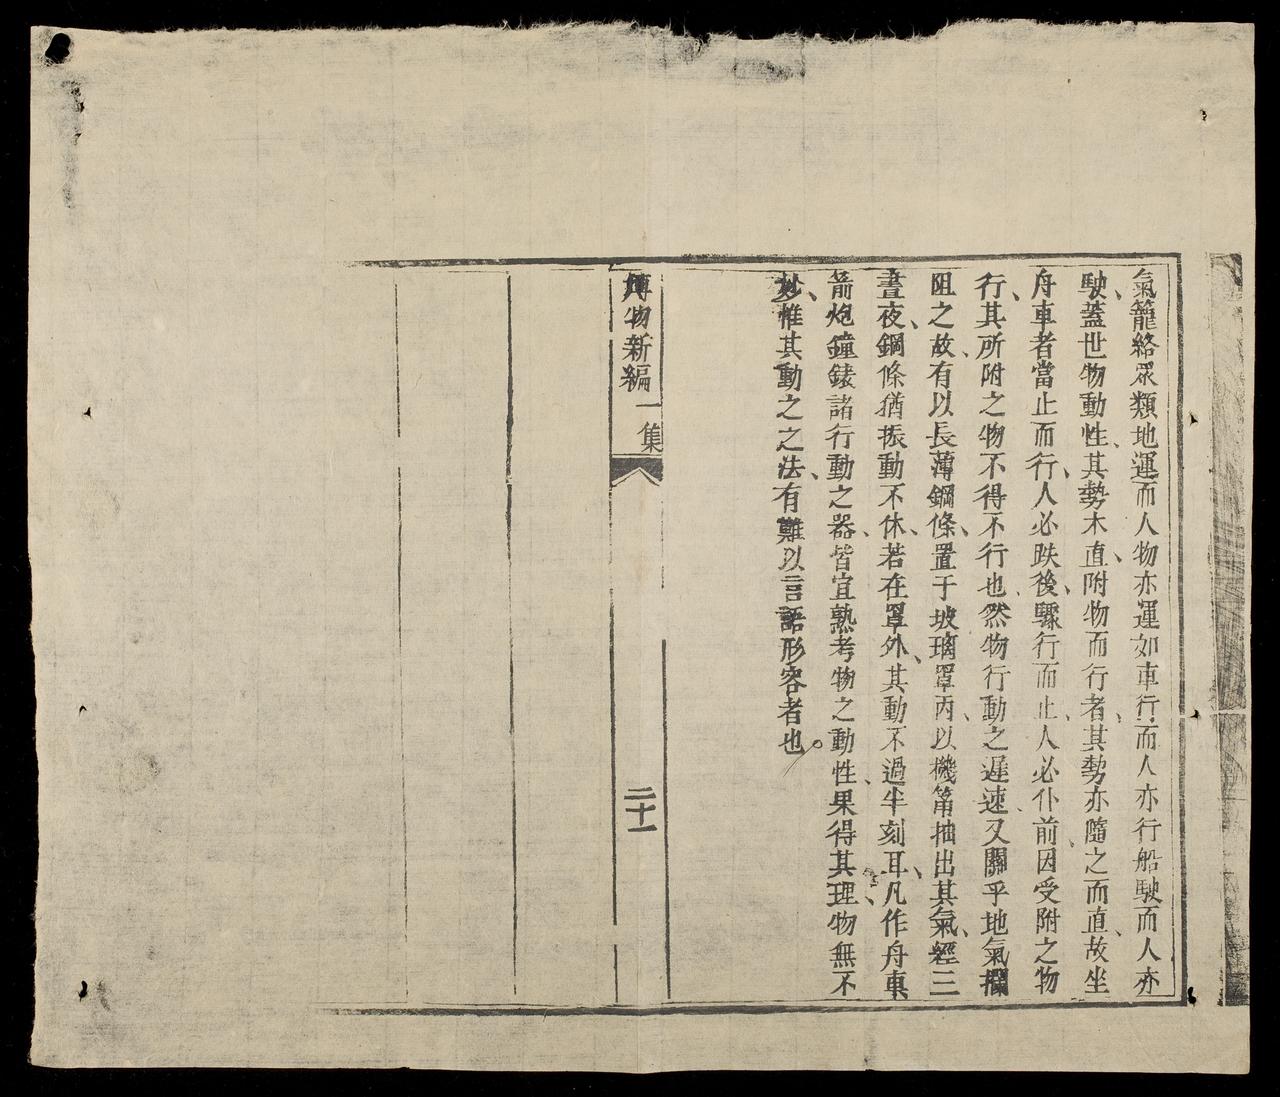 氣籠絡眾類地運而人物亦運如車行而人亦行船駛而人亦
駛、蓋世物動性、其勢木直、附物而行者、其勢亦隨之而直、故坐
舟車者當止而行、人必跌後、驟行而止、人必仆前、因受附之物
行、其所附之物不得不行也、然物行動之遲速、又關乎地氣攔
阻之故、有以長薄鋼條、置于坡璃罩內、以機筩抽出其氣、經三
晝夜、鋼條猶振動不休、若在罩外、其動不過半刻耳、凡作舟車
箭炮鐘錶諸行動之器、皆宜熟考物之動性、果得其理、物無不
妙、惟其動之之法、有難以言語形容者也。
博物新編 一集
二十一